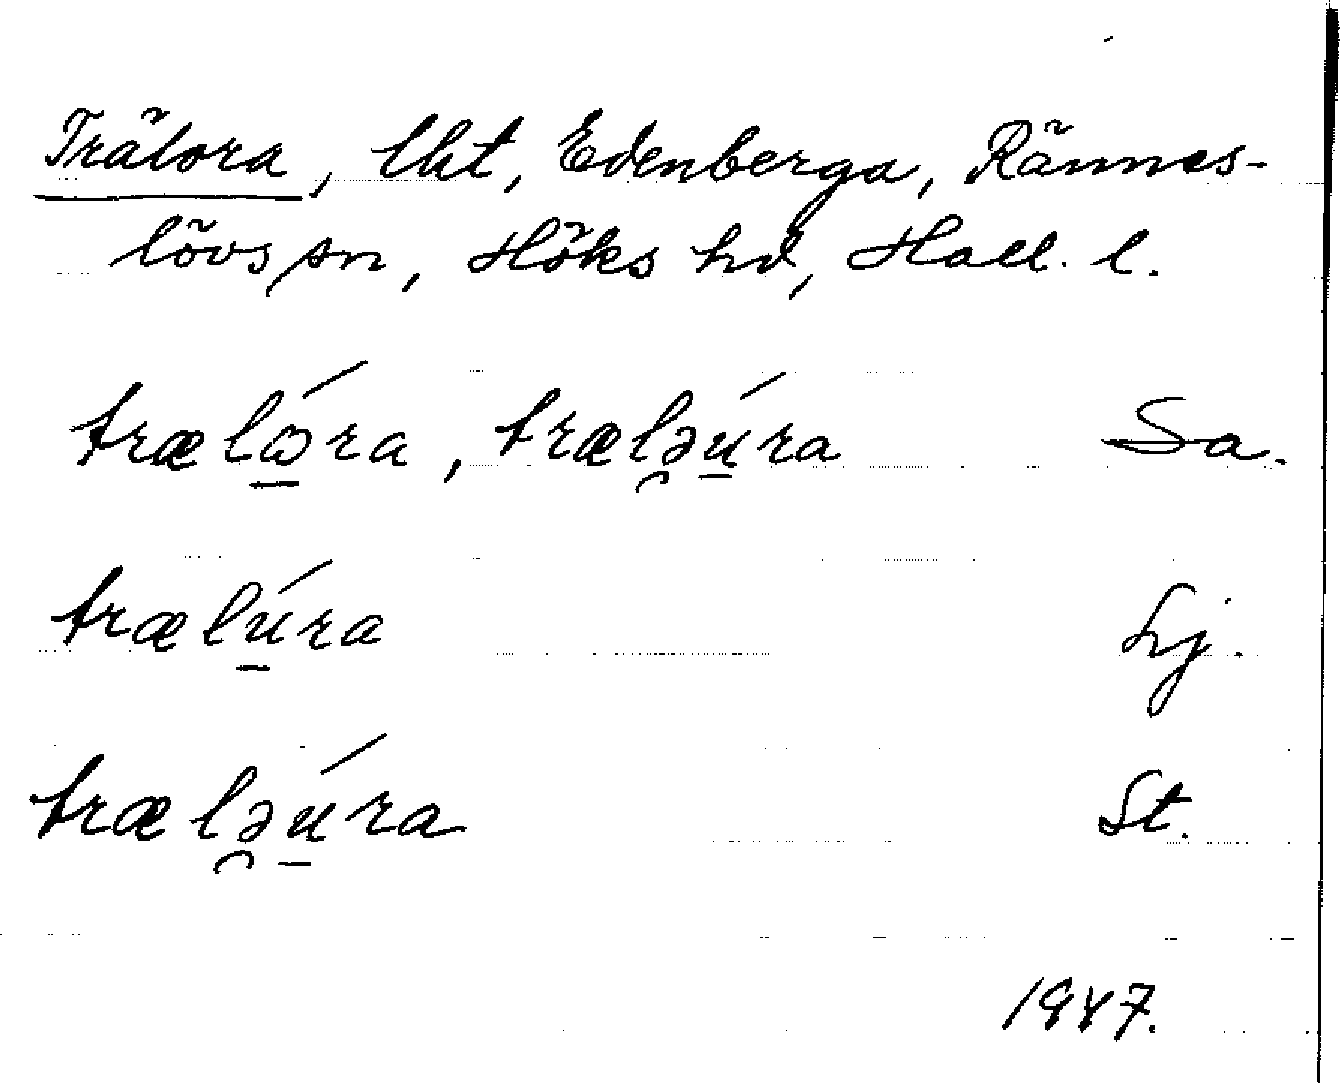 Trälora, lht, Edenberga, Rännes-
lövs sn, Höks hd, Hall. l.
trælώ̱ra, trælə̯ṵ́ra Sa.
trælṵ́ra Lj.
trælə̯ṵ́ra St.
1947.